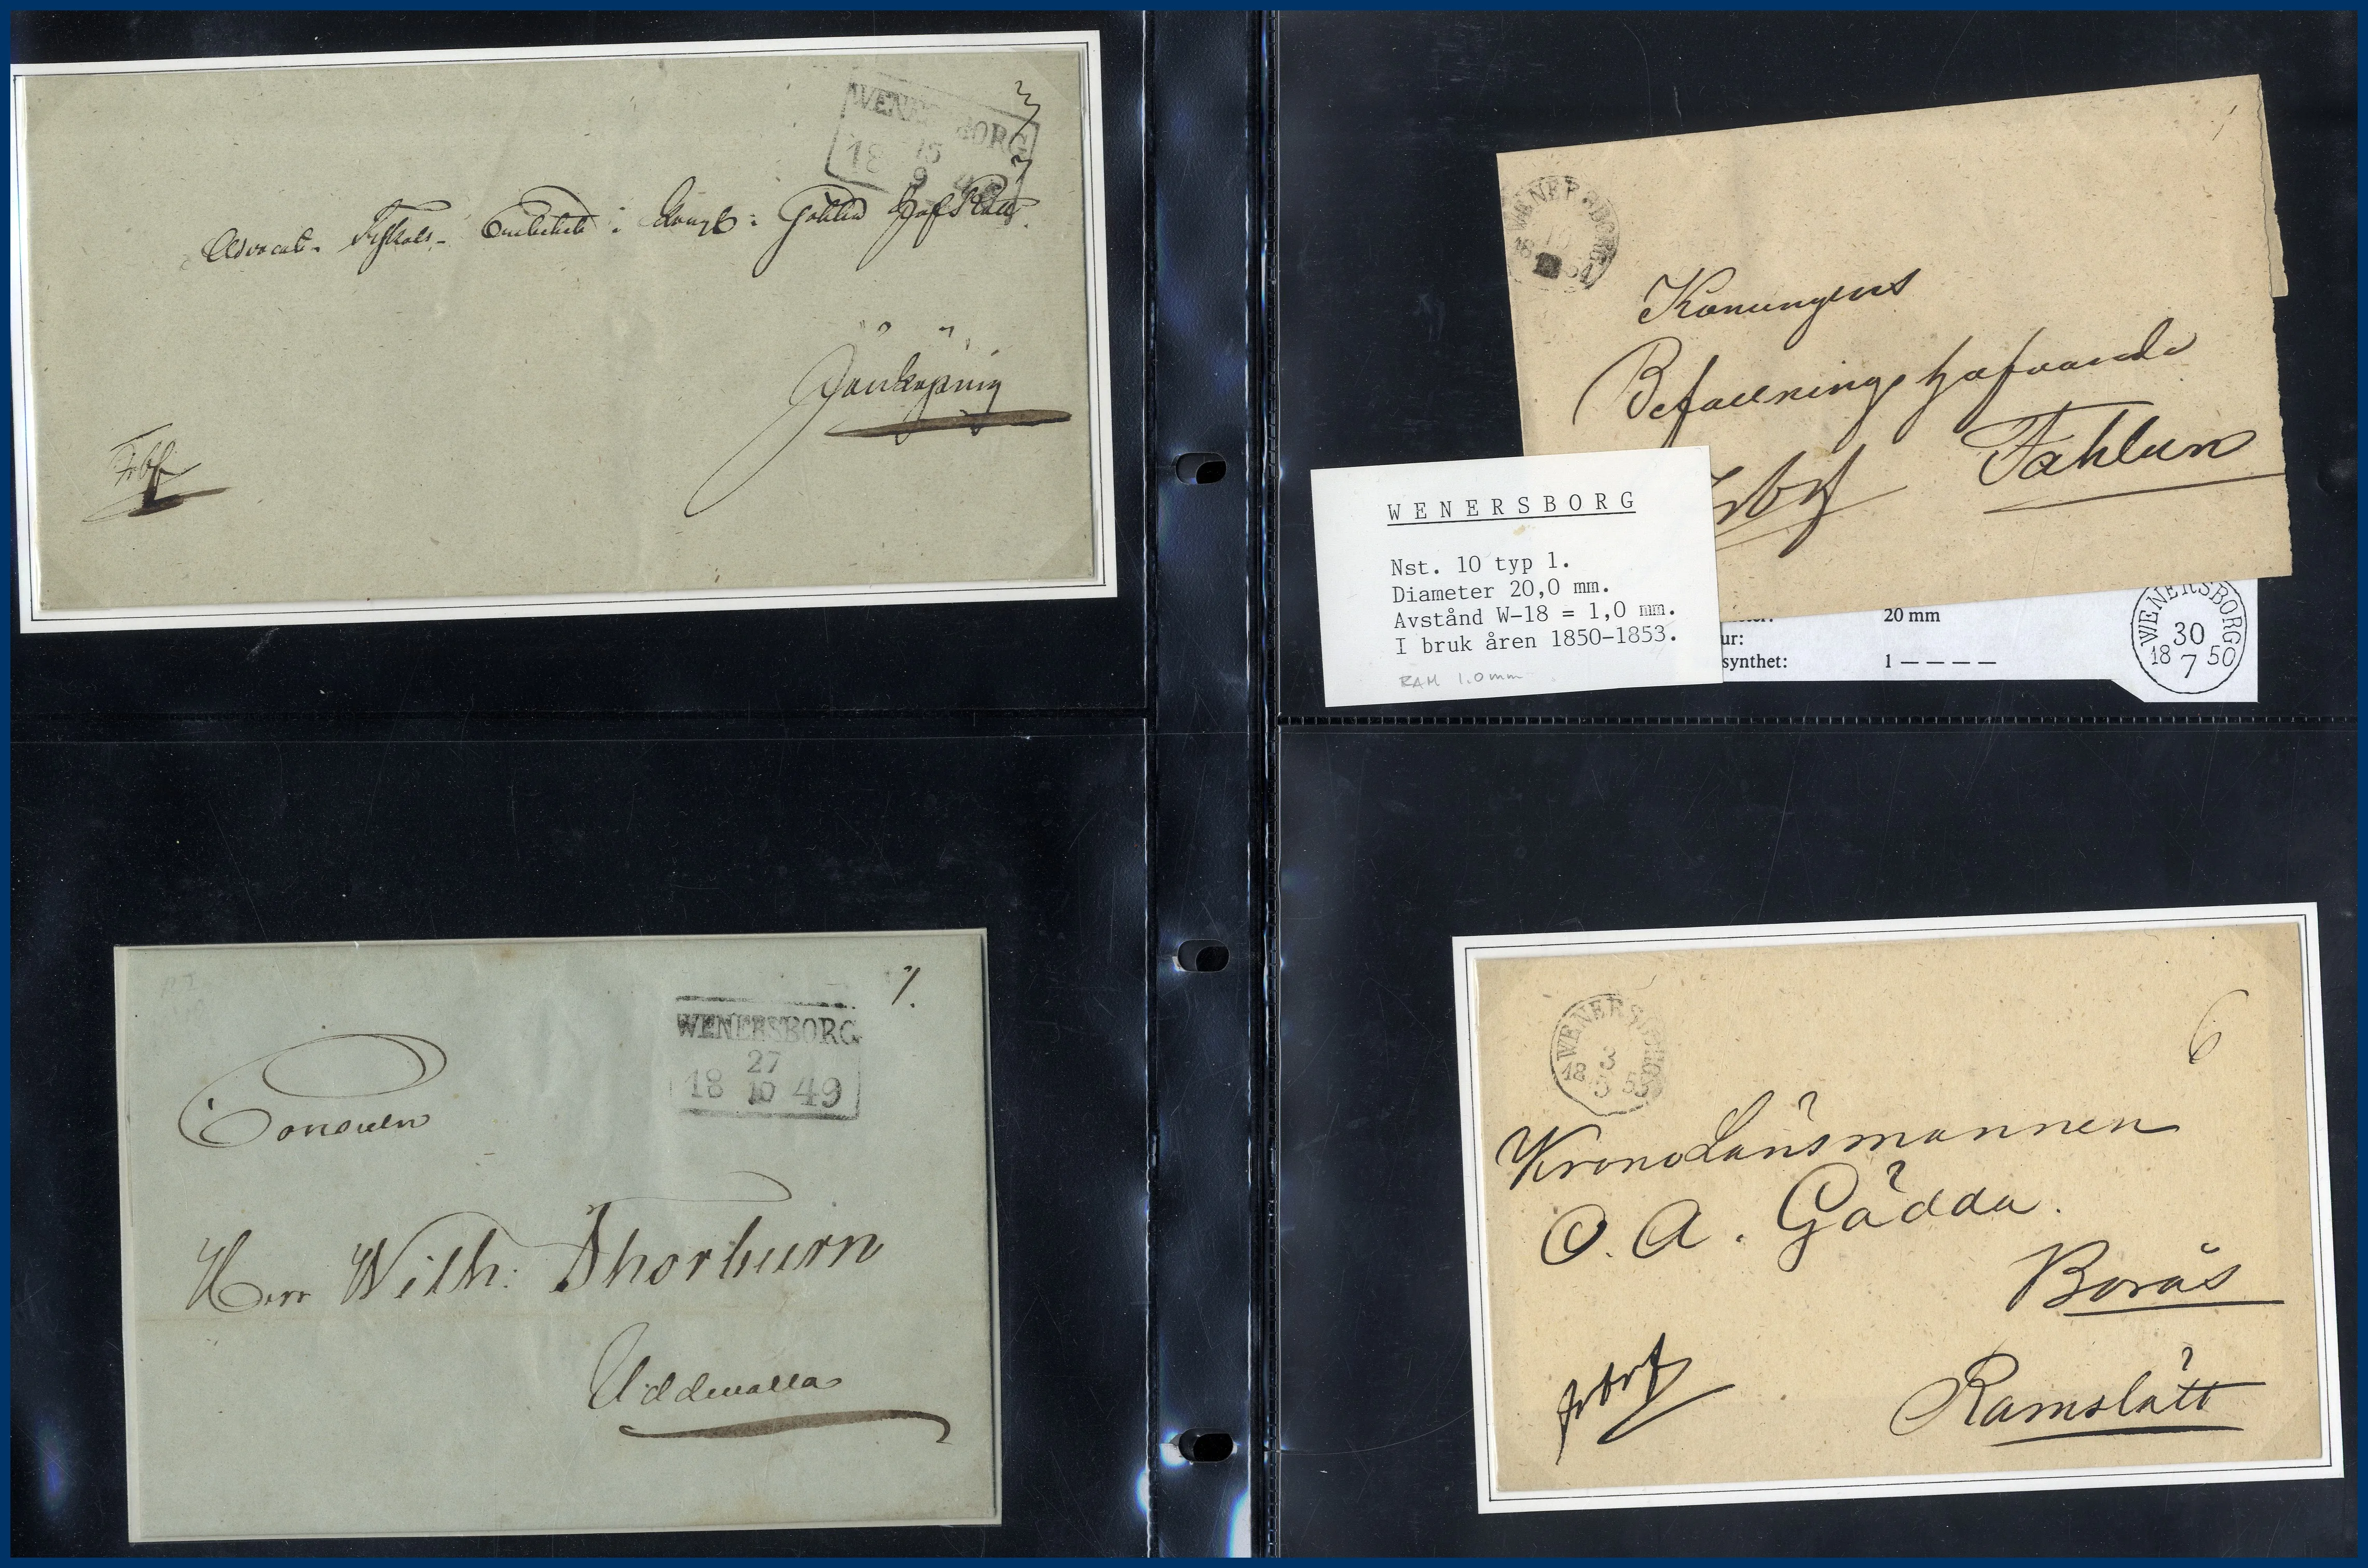 WENERSBORG
15
18 9
Advocat-Fiskals-Embetet i Kongl: Götha HofRätt
Jönköping
Frbf
WENERSBORG
27
18 10 49
7.
Consuln
Herr Wilh: Thorburn
Uddevalla
WENERSBORG
10
18 54
Konungens
Befallningshafvande
Fahlun
WENERSBORG
Nst. 10 typ 1.
Diameter 20,0 mm.
Avstånd W-18 = 1,0 mm.
I bruk åren 1850-1853.
RAM 1.0mm
20 mm
ur:
synthet: 1 – – – –
WENERSBORG
30
18 7 50
WENERSBORG
3
18 3 5
6
KronoLänsmannen
O. A. Gädda.
Borås
frbrf
Ramslätt